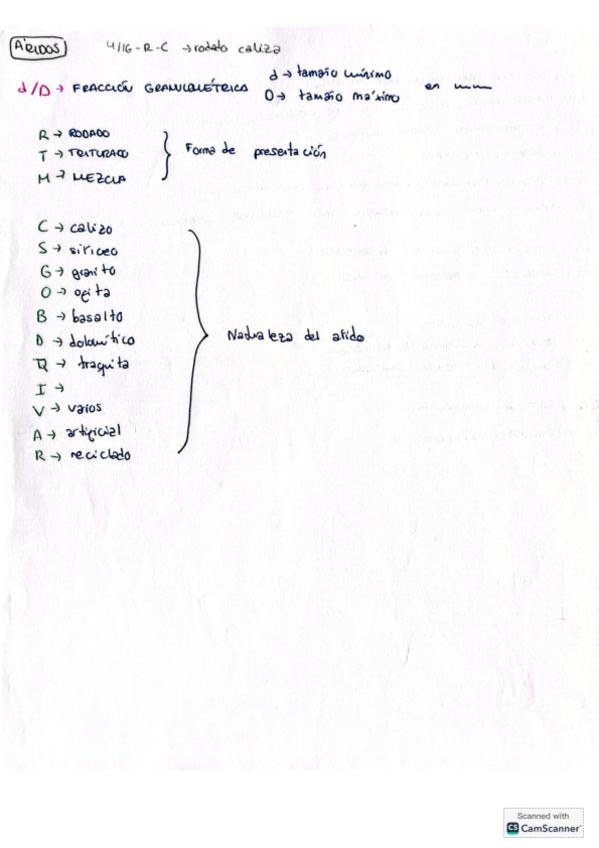 ÁRIDOS 4/16-R-C → rodado caliza
d/D → FRACCIÓN GRANULOMÉTRICA d → tamaño mínimo
D → tamaño máximo en mm
R → RODADO
T → TRITURADO
M → MEZCLA
Forma de presentación
C → calizo
S → siliceo
G → granito
O → ofita
B → basalto
D → dolomítico
Q → traquita
I →
V → varios
A → artificial
R → reciclado
Naturaleza del arido
Scanned with
CS CamScanner